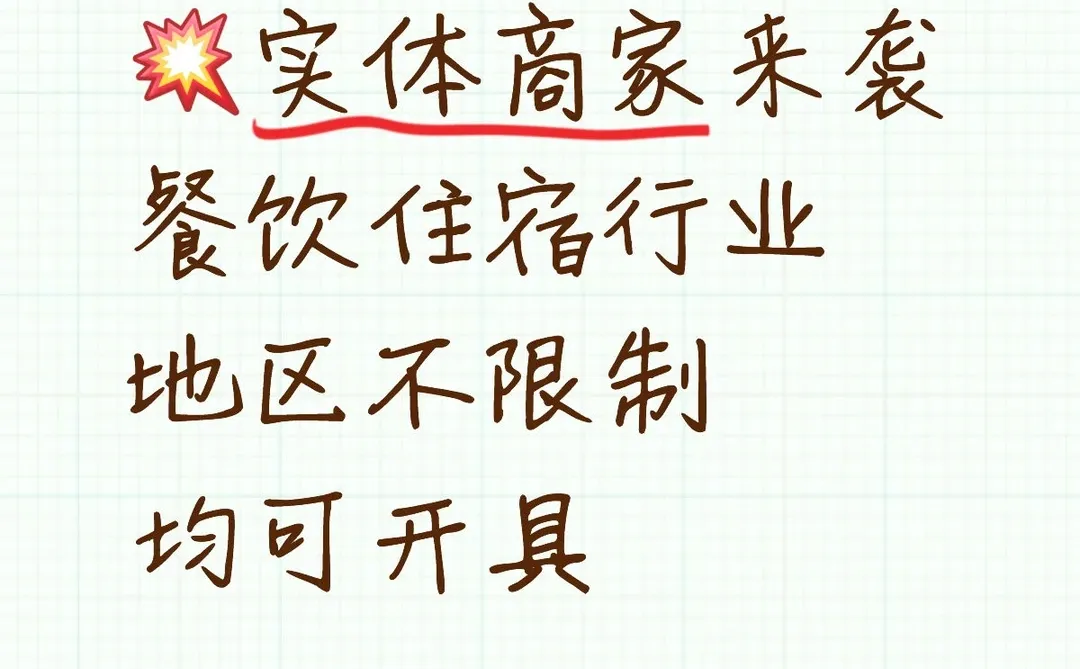 💥实体商家来袭
餐饮住宿行业
地区不限制
均可开具